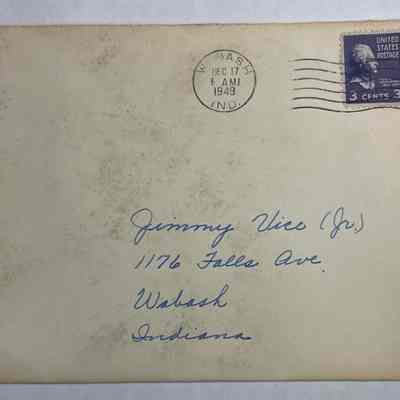 WABASH
DEC 17
6 AM
1949
IND.
UNITED
STATES
POSTAGE
3 CENTS 3
Jimmy Vice (Jr)
1176 Falls Ave.
Wabash
Indiana